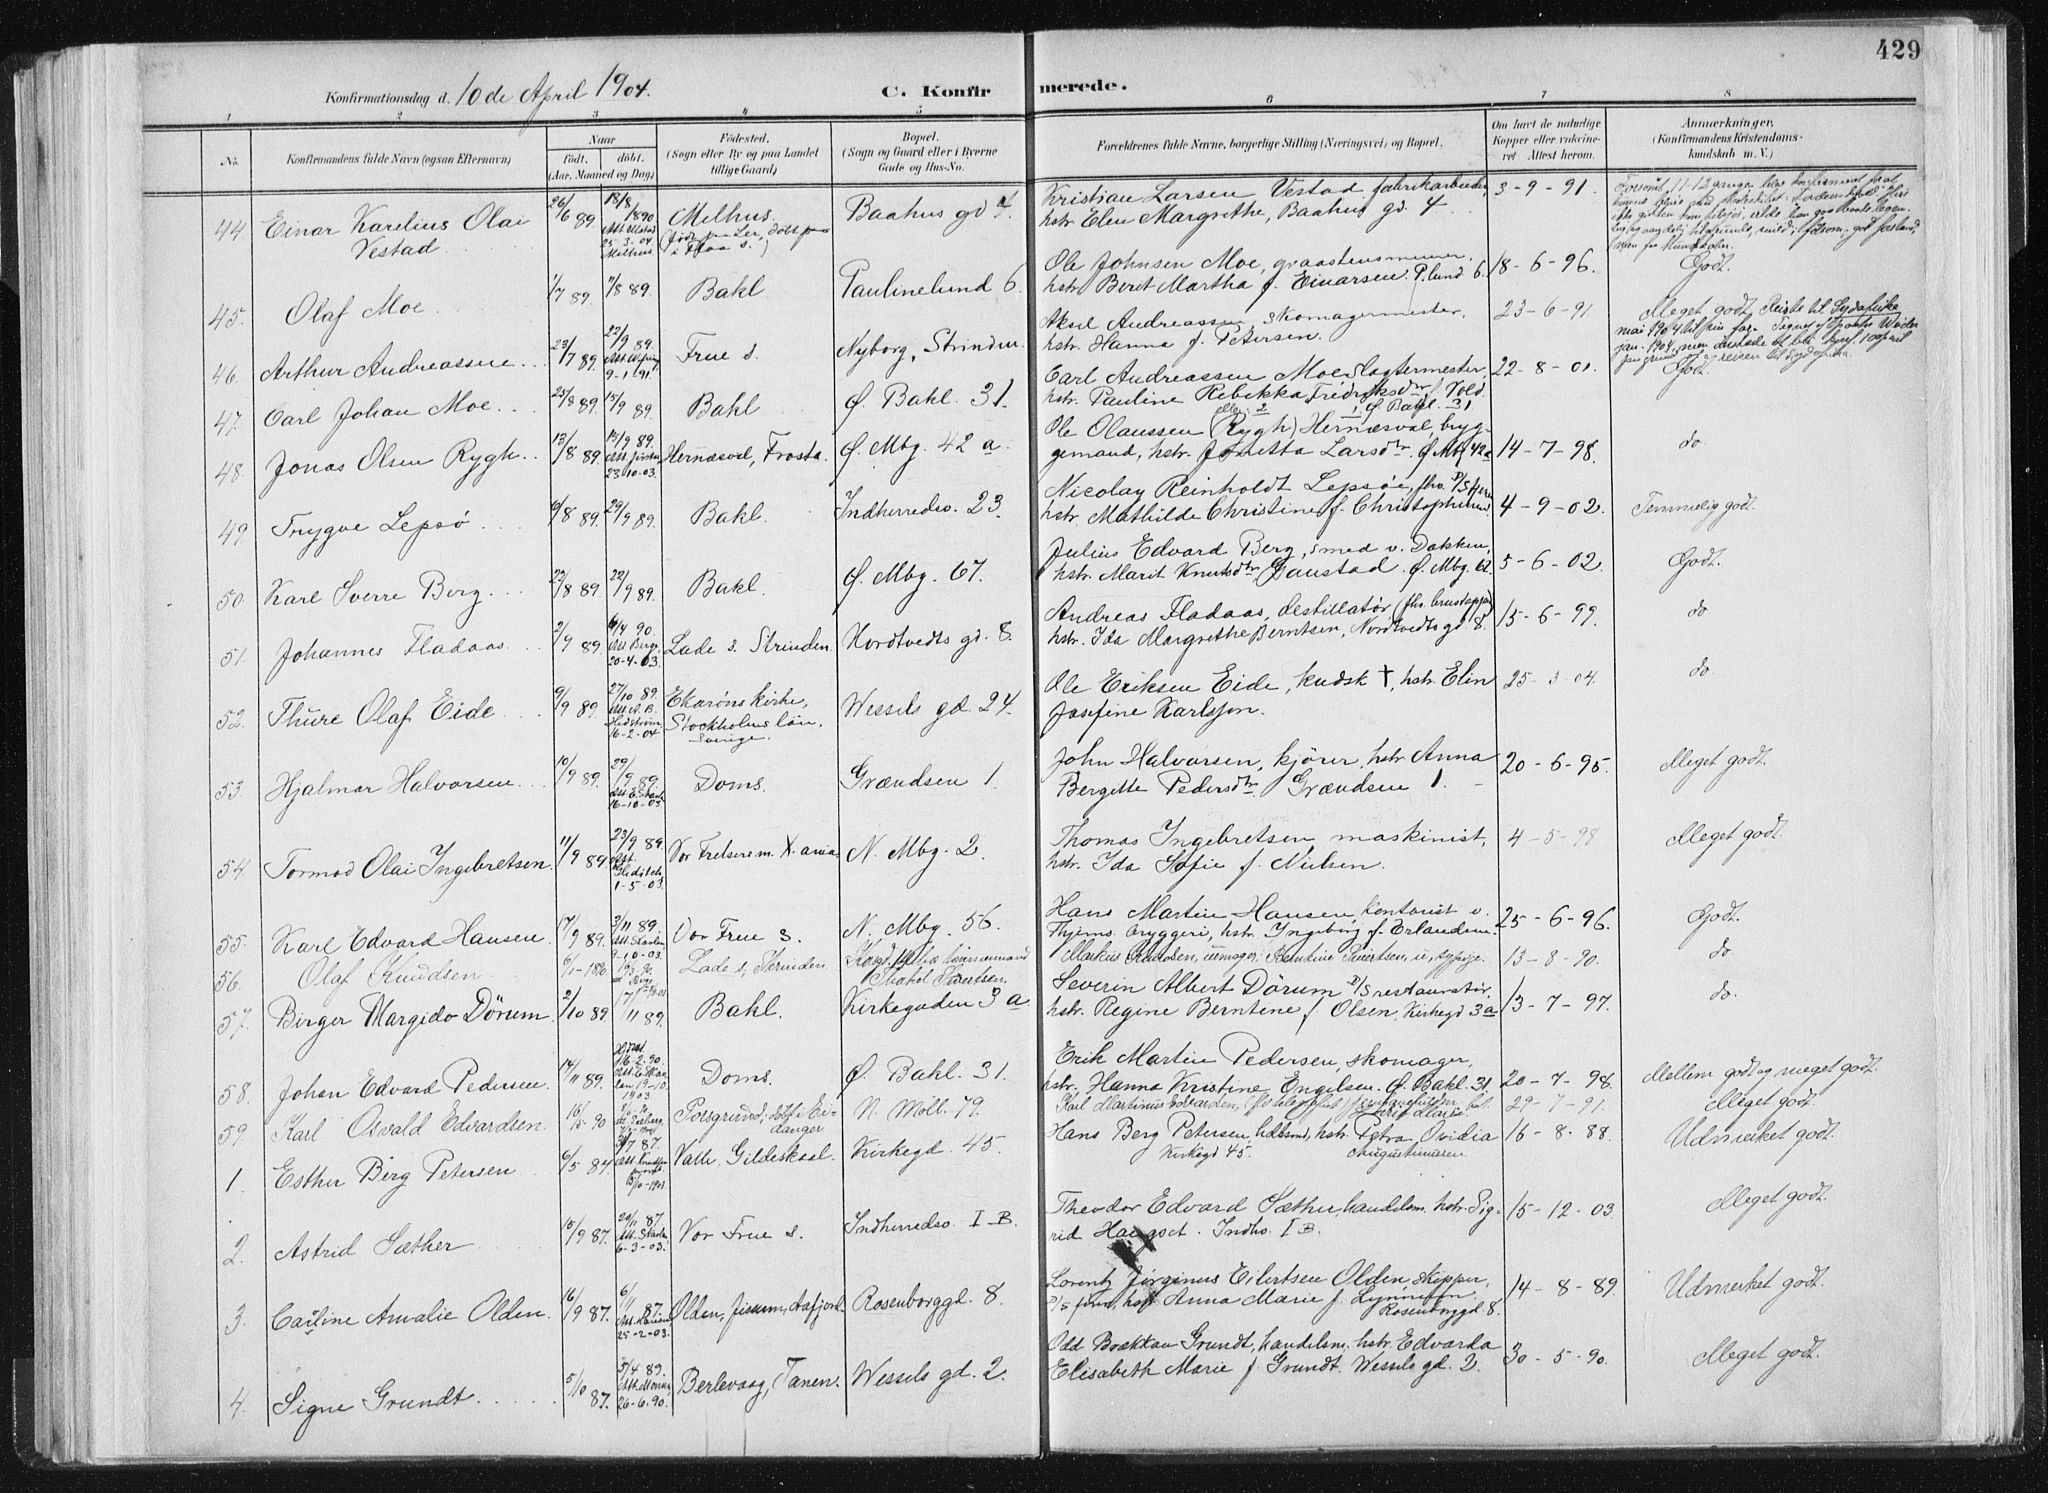 429
Konfirmationsdag d. 10de April 1904.
C. Konfirmerede.
1 2 3 4 5 6 7 8
No.
Konfirmandens fulde Navn (ogsaa Efternavn)
Naar
født, døbt.
(Aar, Maaned og Dag)
Fødested.
(Sogn eller By og paa Landet
tillige Gaard)
Bopæl.
(Sogn og Gaard eller i Byerne
Gade og Hus-No.
Forældrenes fulde Navne, borgerlige Stilling (Næringsvei) og Bopæl.
Om havt de naturlige
Kopper eller vaksine-
ret Attest herom.
Anmærkninger.
(Konfirmandens Kristendoms-
kundskab m. V.)
44. Einar Karelius Olai
Vestad
26/6 89.
18/8 1890
25-3-04
Melhus
Melhus.
(født paa Ler, døbt paa
i Flaa s.)
Baahus gd 4.
Kristian Larsen Vestad fabrikarbeider,
hstr. Elen Margrethe, Baahus gd. 4.
3-9-91.
45. Olaf Moe
1/7 89.
11/8 89.
Bakl
Paulinelund 6.
Ole Johnsen Moe, graastensmurer.
hstr. Beret Martha f. Einarsen. P.lund 6.
18-6-96.
Godt.
46. Arthur Andreassen
23/7 89.
22/9 89.
9-1-91.
Frue s.
Nyborg, Strinden.
Aksel Andreassen, skomagermester.
hstr. Hanna f. Petersen.
23-6-91.
Meget godt, Reiste til Sydafrika
mai 1904 til sin far.
47. Carl Johan Moe.
25/8 89.
15/9 89.
Bakl
Ø. Bakl. 31.
Carl Andreassen Moe slagtermester,
hstr. Pauline Rebekka Fredriksdtr. f. Vold.
Ø Bakl. 31
22-8-01.
Godt.
48. Jonas Olsen Rygh.
13/8 89.
15/9 89.
23-10-03.
Hernæsval, Frosta.
Ø. Mbg. 42 a.
Ole Olaussen (Rygh) Hernæsval, bryg-
gemand, hstr. Jonetta Larsdtr. Ø Mbg 42a
14-7-98.
do
49. Trygve Lepsø
29/9 89.
Bakl.
Indherredsv. 23.
Nicolay Reinholdt Lepsøe,
hstr. Mathilde Christine f. Christophersen
4-9-02.
Temmelig godt.
50. Karl Sverre Berg.
22/8 89.
22/9 89.
Bakl.
Ø. Mbg. 67.
Julius Edvard Berg, smed v. Dokken,
hstr. Marit Knutsdtr. Gaustad. Ø. Mbg. 67.
5-6-02.
Godt.
51. Johannes Fladaas
2/9 89.
20-4-03.
Lade s. Strinden.
Nordtvedts gd. 8.
Andreas Fladaas, destillatør
hstr. Ida Margrethe Berntsen, Nordtvedts gd 8.
15-6-99.
do
52. Thure Olaf Eide
9/9 89.
27/10 89.
16-2-04
Ekerøns kirke,
Stockholms län,
Sverige.
Wessels gd. 24.
Ole Eriksen Eide, kudsk †, hstr. Elin
Josefine Karlsson.
25-3-04.
do.
53. Hjalmar Halvorsen
10/9 89.
29/9 89.
16-10-03
Doms.
Grændsen 1.
John Halvorsen, kjører, hstr. Anna
Bergitte Pedersdtr. Grændsen 1.
20-6-95.
Meget godt.
54. Tormod Olai Ingebretsen.
11/9 89.
23/9 89.
1-5-03.
Vor Frelsers m. X.ania
N. Mbg. 2.
Thomas Ingebretsen, maskinist,
hstr. Ida Sofie f. Nielsen.
4-5-98
Meget godt.
55. Karl Edvard Hansen.
17/9 89.
3/11 89.
9-10-03.
Vor Frue s.
N. Mbg. 56.
Hans Martin Hansen, kontorist v.
Thjems bryggeri, hstr. Ingeborg f. Erlandsen.
25-6-96.
Godt.
56. Olaf Knudsen
Lade s, Strinden
Markus Knudsen, urmager,
13-8-90.
do.
57. Birger Margido Dørum
2/10 89.
17/11 89.
Bakl.
Kirkegaden 3 a
Severin Albert Dørum D/S restauratør,
hstr. Regine Berntine f. Olsen, Kirkegd 3a
13-7-97.
do.
58. Johan Edvard Pedersen.
14/11 89.
16-2-90.
19-10
1903
Doms.
Ø. Bakl. 31.
Erik Martin Pedersen, skomager,
hstr. Hanna Kristine Engelsen. Ø. Bakl. 31.
20-7-98.
Mellem godt og meget godt.
59. Karl Osvald Edvardsen
Porsgrund, døbt i Ei-
danger
N. Møll. 79.
Karl Martinus Edvardsen,
29-7-91.
Meget godt.
1. Esther Berg Petersen
6/5 87.
31/7 87.
15/10-1903
Valle, Gildeskaal.
Kirkegd. 45.
Hans Berg Petersen, hstr. Petra Ovidia
Kirkegd 45. Augustinussen.
16-8-88.
Udmerket godt.
2. Astrid Sæther
15/9 87.
20/11 87.
6-3-03.
Vor Frue s.
Indherredsv. I B.
Theodor Edvard Sæther, handelsm. hstr. Sig-
rid Haugset. Indhv. I B.
15-12-03.
Meget godt.
3. Caroline Amalie Olden.
16/9 87.
6/11 87.
25-2-03.
Olden, Jissum, Aafjord.
Rosenborggd. 8.
Lorentz Jørginus Eilertsen Olden skipper,
hstr. Anna Marie f.
Rosenborggd 8.
14-8-89.
Udmerket godt.
4. Signe Grundt
5/10 87.
5/4 89.
26-6-90.
Berlevaag, Tanen.
Wessels gd. 2.
Odd Brækkan Grundt, handelsm. hstr. Edvarda
Elisabeth Marie f. Grundt. Wessels gd. 2.
30-5-90.
Meget godt.